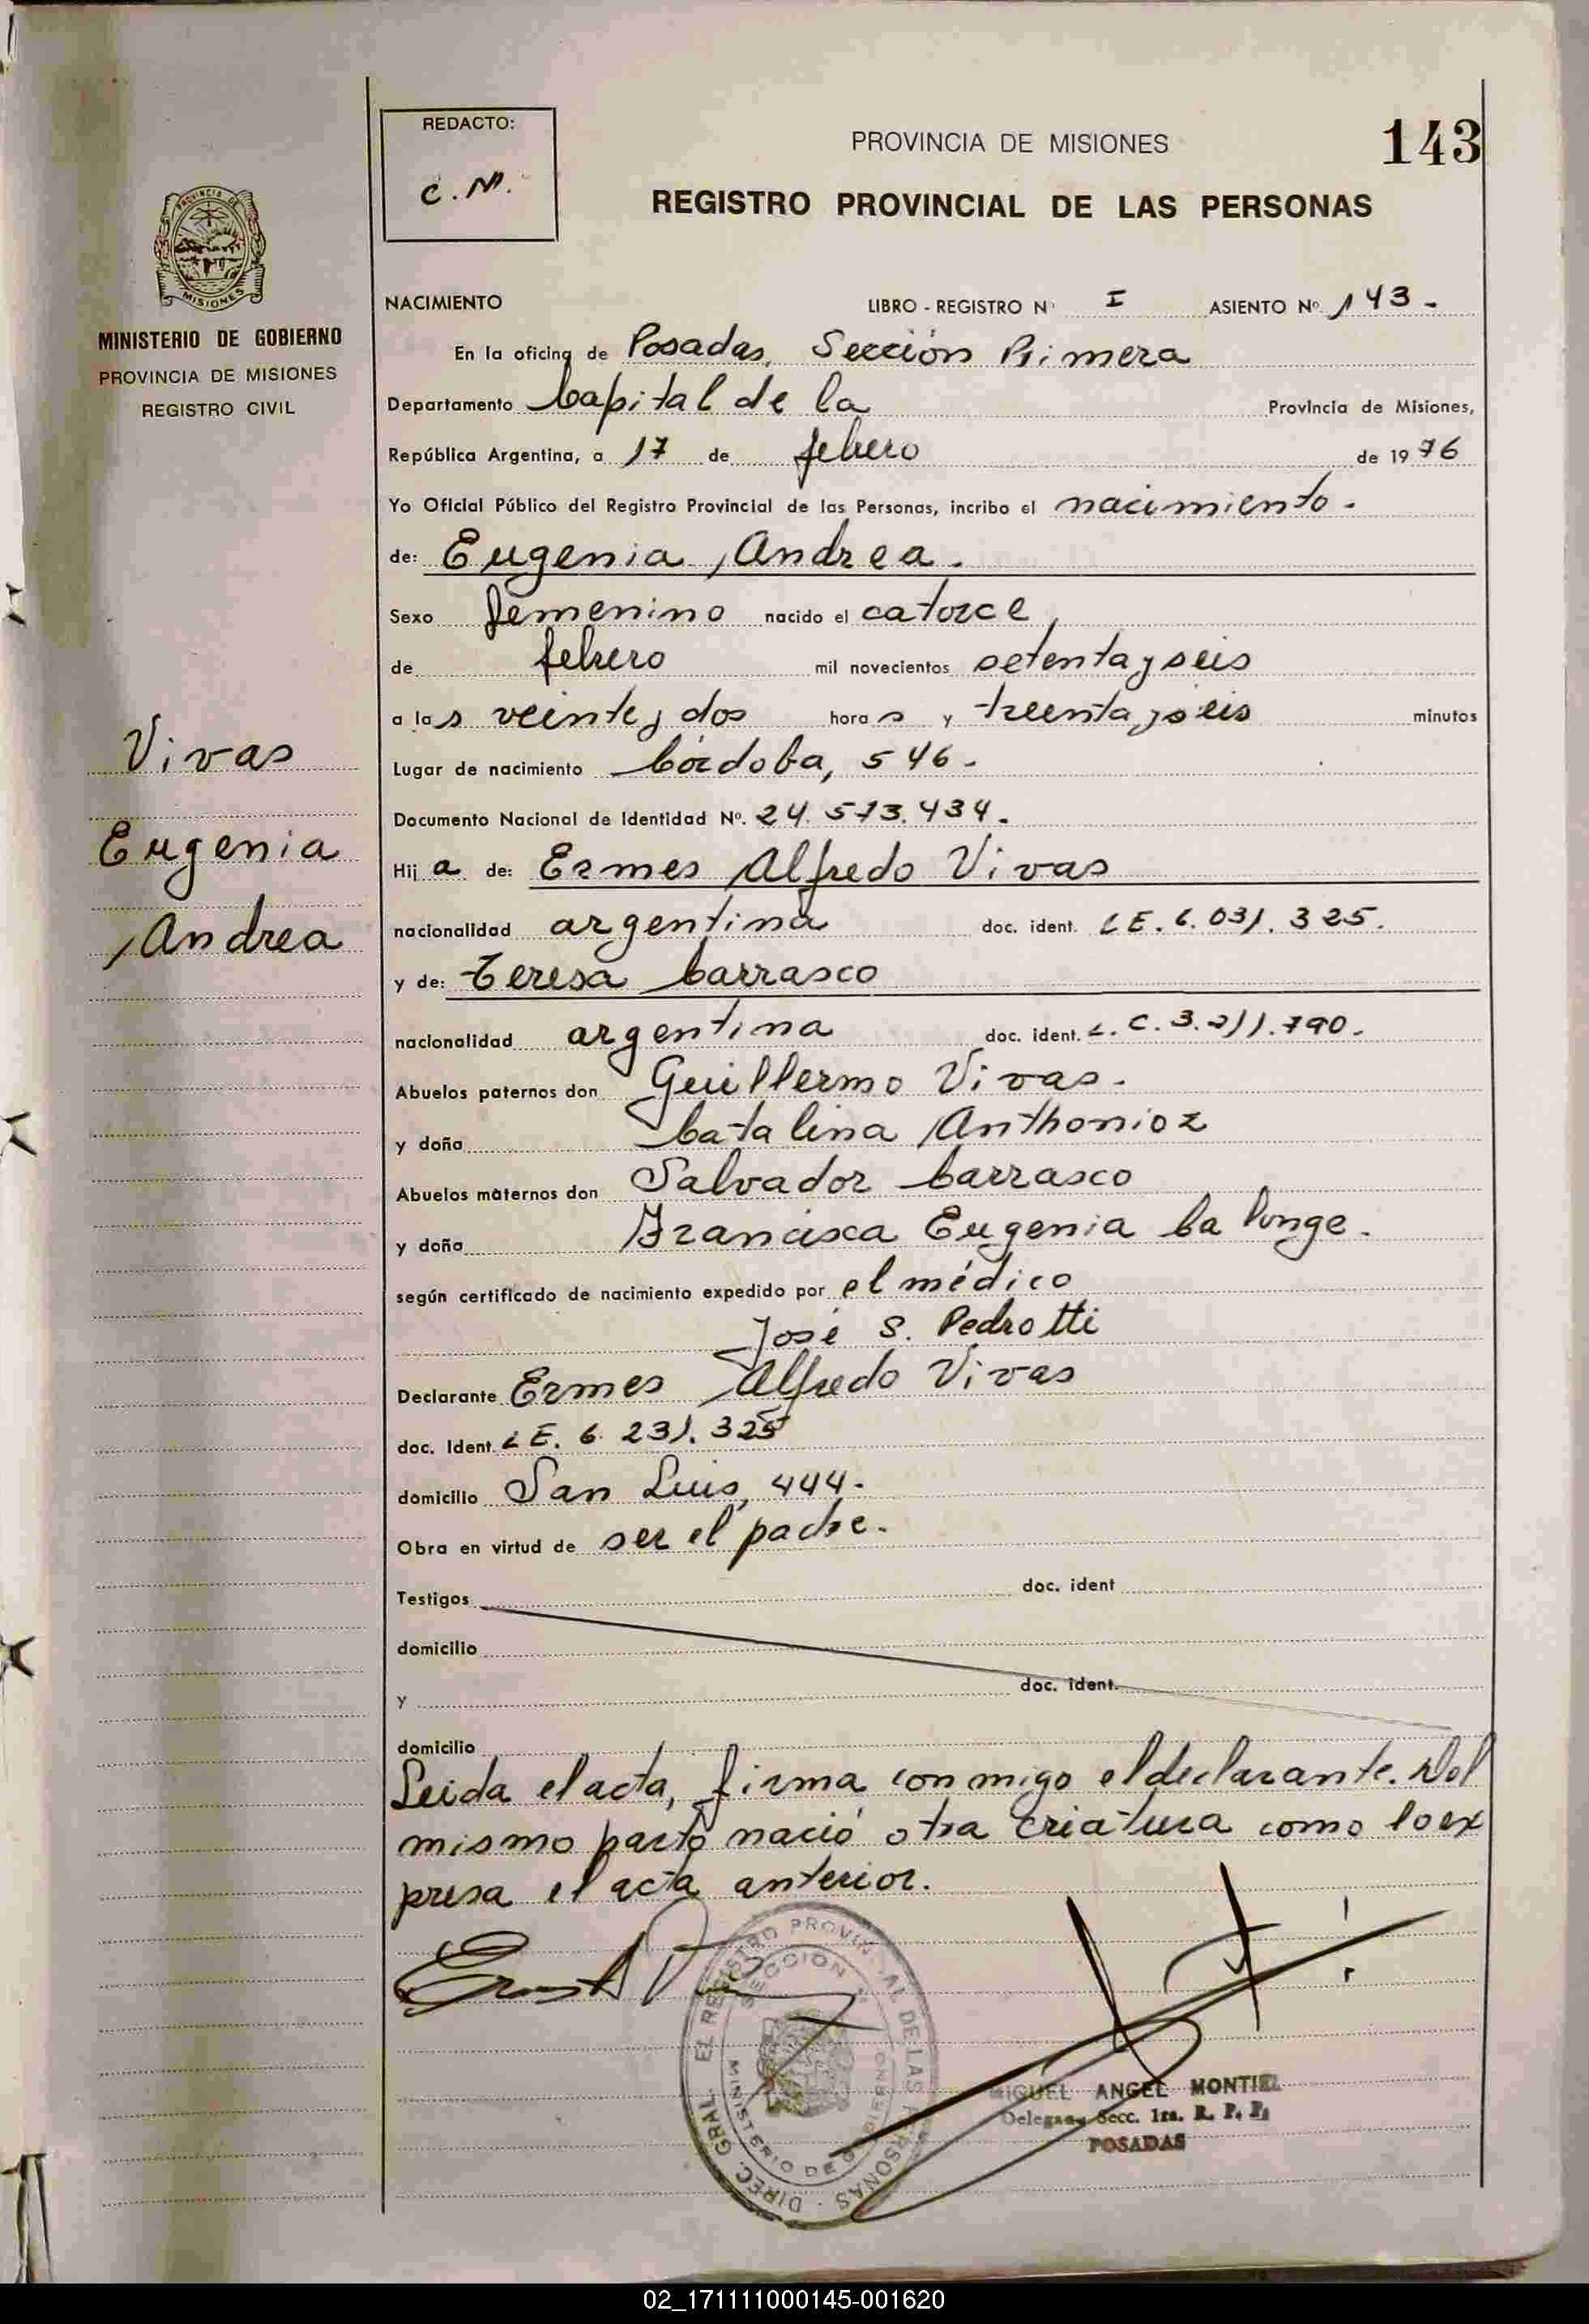 REDACTO:
C. M.
PROVINCIA DE MISIONES
143
REGISTRO PROVINCIAL DE LAS PERSONAS
PROVINCIA DE
MISIONES
MINISTERIO DE GOBIERNO
PROVINCIA DE MISIONES
REGISTRO CIVIL
Vivas
Eugenia
Andrea
NACIMIENTO LIBRO - REGISTRO N° I ASIENTO Nº 143 -
En la oficina de Posadas, Sección Primera
Departamento Capital de la Provincia de Misiones,
República Argentina, a 17 de febrero de 1976
Yo Oficial Público del Registro Provincial de las Personas, incribo el nacimiento.
de: Eugenia Andrea.
Sexo femenino nacido el catorce
de febrero mil novecientos setenta y seis
a las veinte y dos horas y treenta y seis minutos
Lugar de nacimiento Córdoba, 546.
Documento Nacional de Identidad Nº. 24.573.434.
Hija de: Ermes Alfredo Vivas
nacionalidad argentina doc. ident. LE. 6.031.325.
y de: Teresa Carrasco
nacionalidad argentina doc. ident. L.C. 3.211.790.
Abuelos paternos don Guillermo Vivas.
y doña Catalina Anthonioz
Abuelos maternos don Salvador Carrasco
y doña Francisca Eugenia
según certificado de nacimiento expedido por el médico
José S. Pedrotti
Declarante Ermes Alfredo Vivas
doc. Ident. LE. 6.231.325
domicilio San Luis, 444.
Obra en virtud de ser el padre.
Testigos doc. ident
domicilio
y doc. ident.
domicilio
Leida el acta, firma conmigo el declarante. Del
mismo parto nació otra criatura como lo ex
presa el acta anterior.
DIREC. GRAL. EL REGISTRO PROVINCIAL DE LAS PERSONAS
SECCION
MINISTERIO DE GOBIERNO
MIGUEL ANGEL MONTIEL
Delegado Secc. 1ra. R. P. P.
POSADAS
02_171111000145-001620